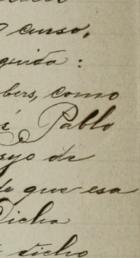 curso,
guida:
bers, como
é Pablo
yo de
le que esa
Dicha
dicho